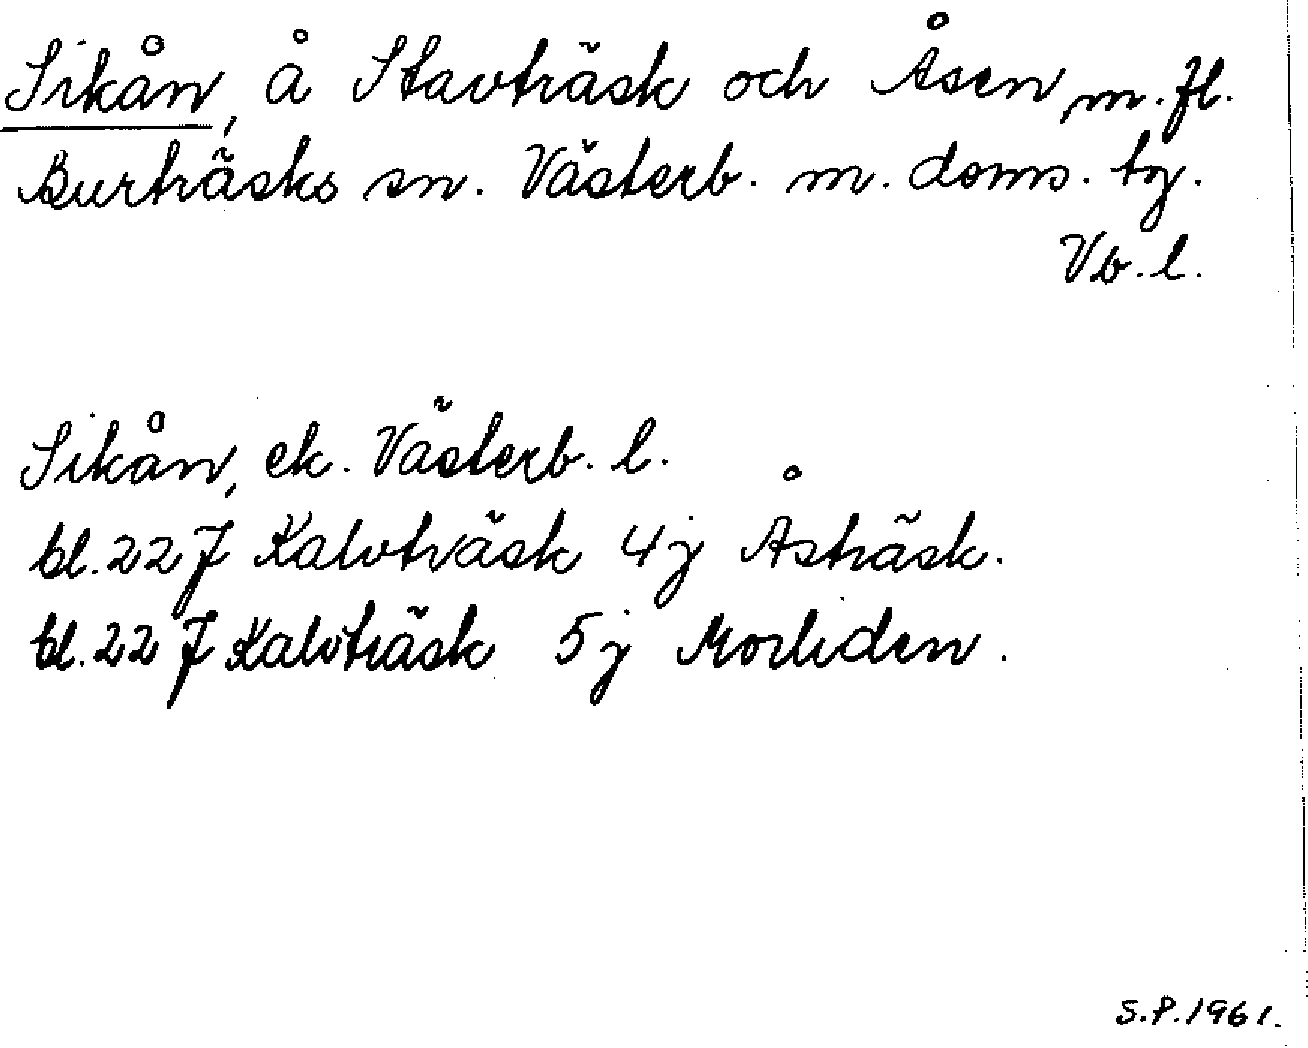 Sikån, å Stavträsk och Åsen, m. fl.
Burträsks sn. Västerb. m. doms. tg.
Vb. l.
Sikån, ek. Västerb. l.
bl. 22 J Kalvträsk 4j Åsträsk.
bl. 22 J Kalvträsk 5j Morliden.
S.P. 1961.